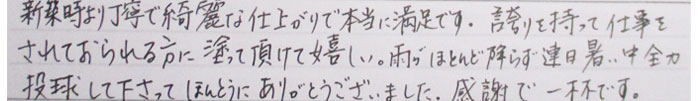 新築時より丁寧で綺麗な仕上がりで本当に満足です。誇りを持って仕事を
されておられる方に塗って頂けて嬉しい。雨がほとんど降らず連日暑い中全力
投球して下さってほんとうにありがとうございました。感謝で一杯です。